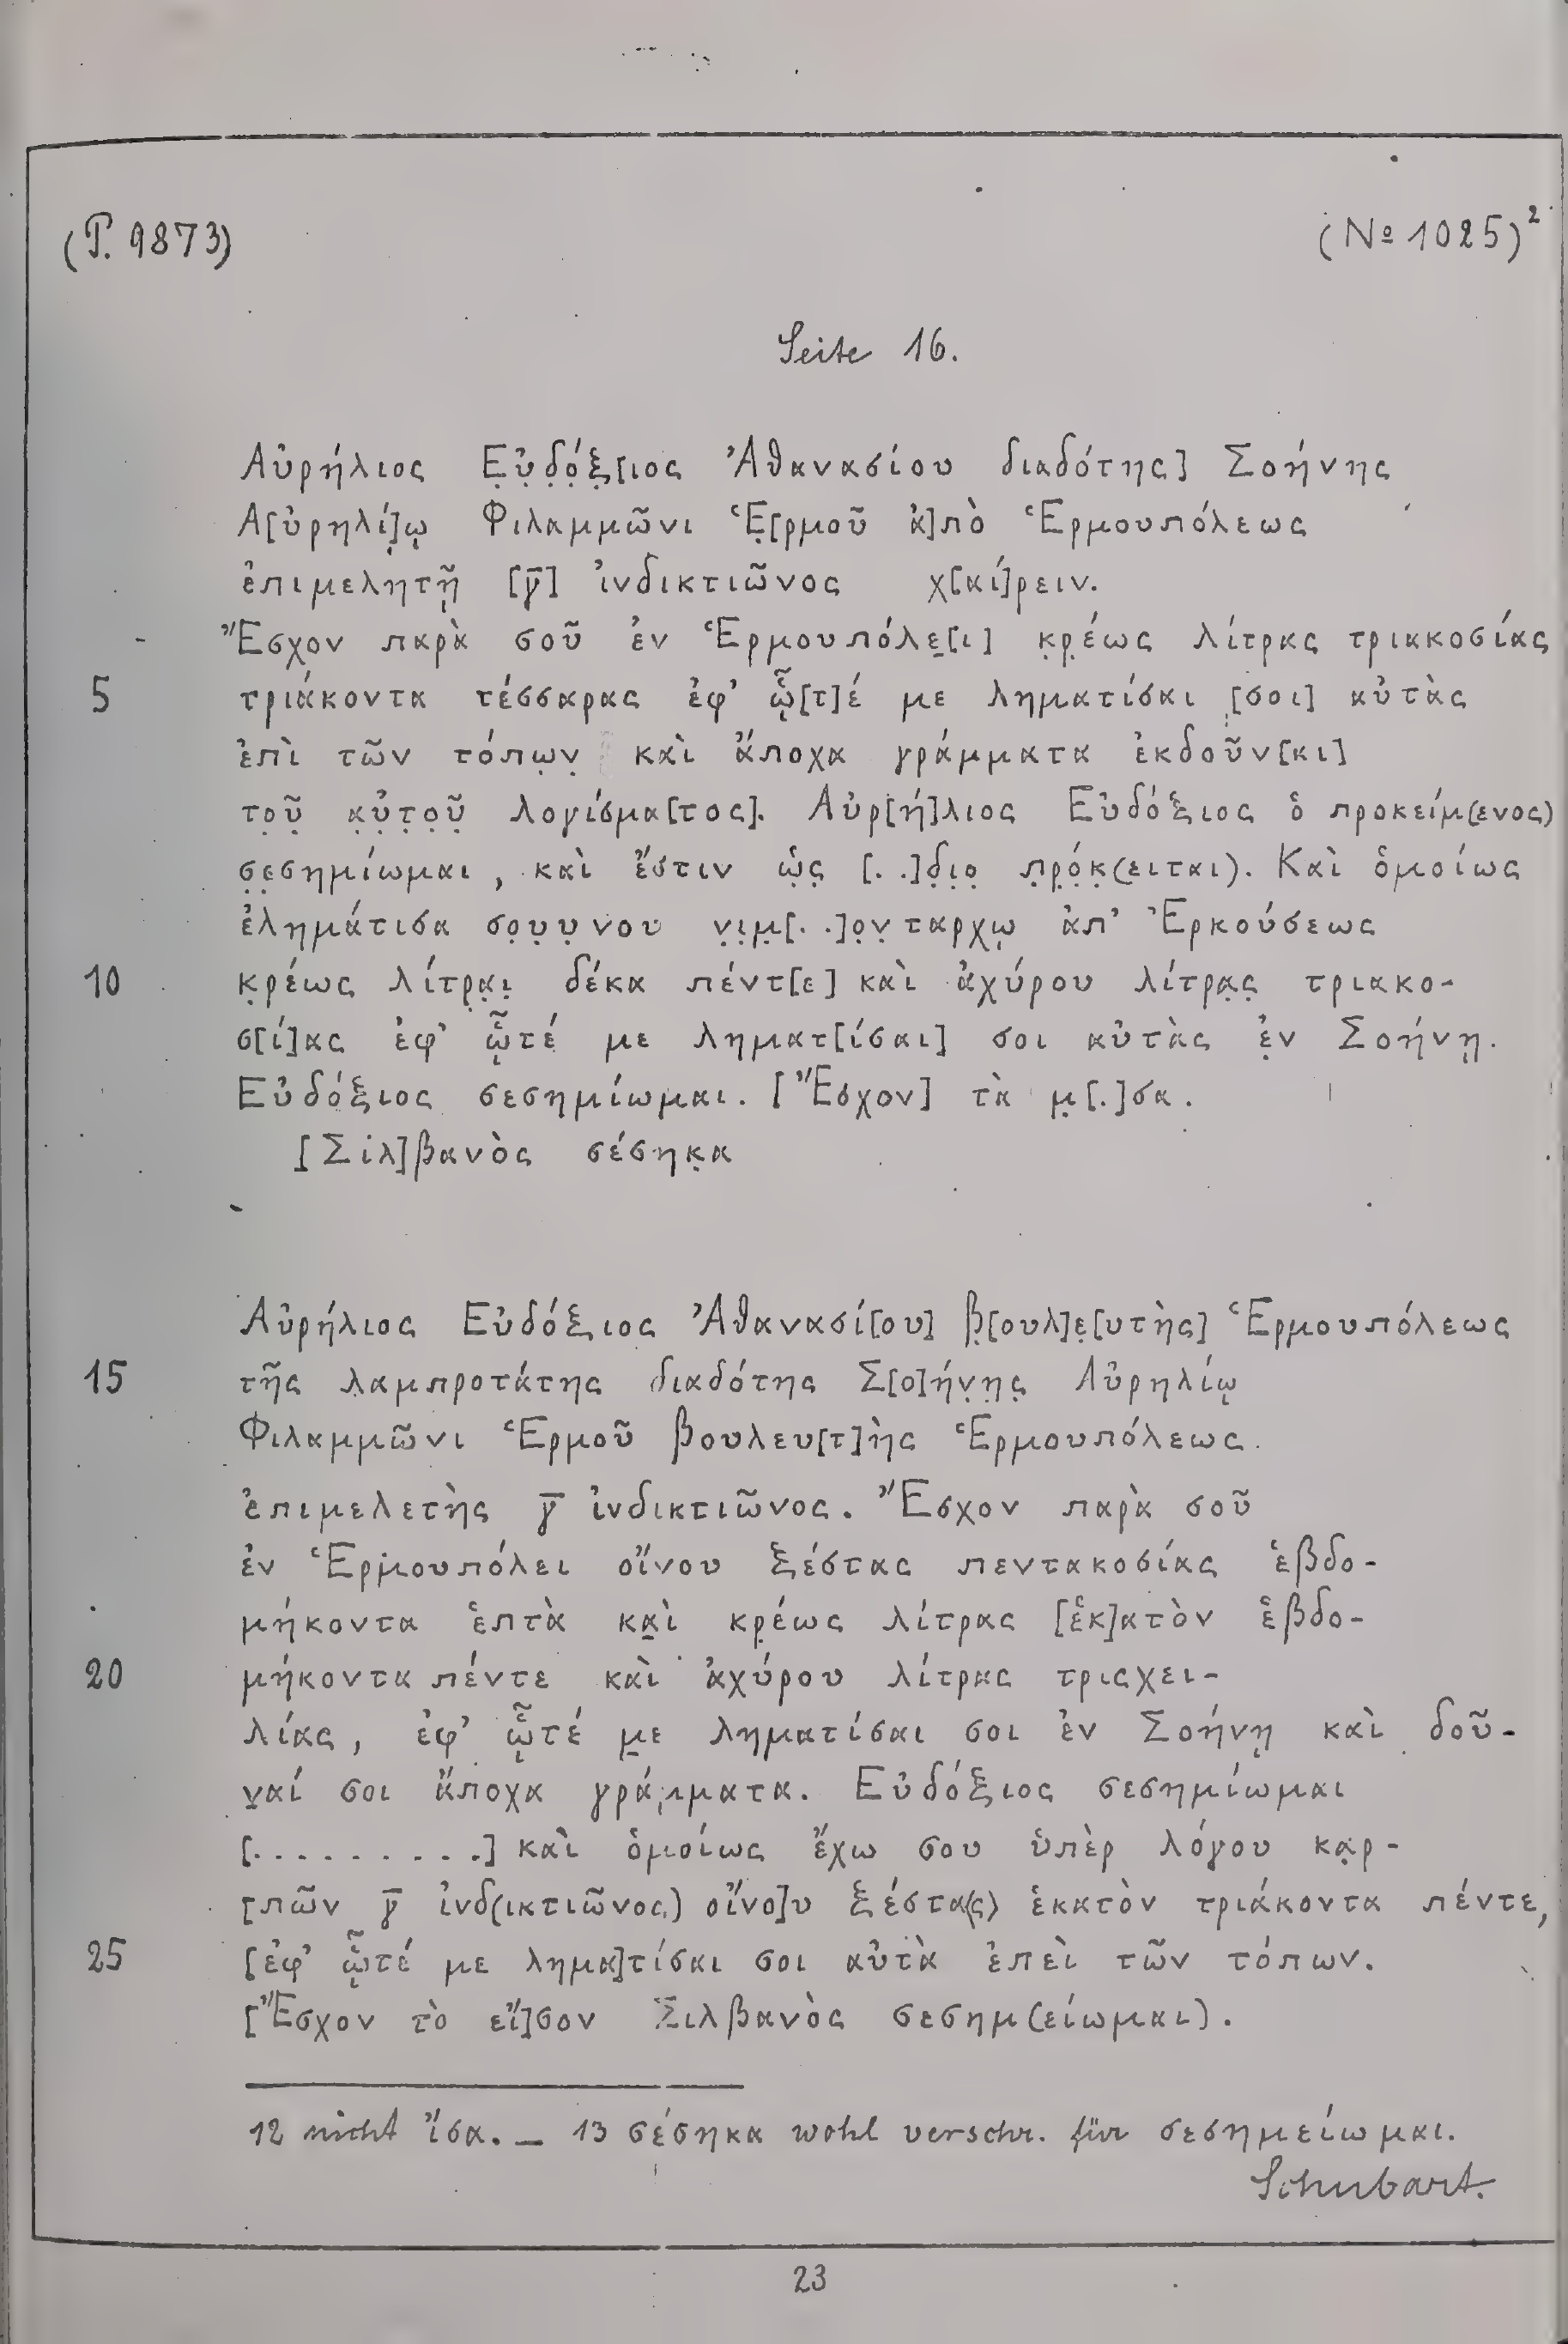 (P. 9873)
(Nº 1025)²
Seite 16.
Αὐρήλιος Ε̣ὐ̣δ̣ό̣ξ̣[ιος Ἀθανασίου διαδότης] Σοήνης
Α[ὐρηλί]ῳ Φιλαμμῶνι Ἑ̣[ρμοῦ ἀ]πὸ Ἑρμουπόλεως
ἐπιμελητῇ [γ̅] ἰνδικτιῶνος χ[αί]ρειν.
Ἔσχον παρὰ σοῦ ἐν Ἑρμουπόλε̣[ι] κ̣ρ̣έως λίτρας τριακοσίας
5 τριάκοντα τέσσαρας ἐφ’ ᾧ[τ]έ με λημματίσαι [σοι] αὐτὰς
ἐπὶ τῶν τόπω̣ν̣ καὶ ἄποχα γράμματα ἐκδοῦν[αι]
τ̣ο̣ῦ̣ α̣ὐ̣τ̣ο̣ῦ̣ λογίσμα[τος]. Αὐρ[ή]λιος Εὐδόξιος ὁ προκείμ(ενος)
σ̣ε̣σημίωμαι, καὶ ἔστιν ὡ̣ς̣ [..]δ̣ι̣ο̣ π̣ρ̣ό̣κ̣(ειται). Καὶ ὁμοίως
ἐλημάτισα σο̣υ̣υ̣νου ν̣ι̣μ̣[..]ο̣ν̣ταρχῳ ἀπ’ Ἑρκούσεως
10 κ̣ρέως λίτρα̣ι̣ δέκα πέντ[ε] καὶ ἀχύρου λίτρα̣ς̣ τριακο-
σ[ί]ας ἐφ’ ᾧτέ με λημματ[ίσαι] σοι αὐτὰς ἐ̣ν Σοήνῃ.
Εὐδόξιος σεσημίωμαι. [Ἔσχον] τὰ μ̣[.]σα.
[Σιλ]βανὸς σέσηκ̣α
Αὐρήλιος Εὐδόξιος Ἀθανασί[ου] β̣[ουλ]ε̣[υτὴς] Ἑρμουπόλεως
15 τῆς λαμπροτάτης διαδότης Σ[ο]ήν̣η̣ς̣ Αὐρηλίῳ
Φιλαμμῶνι Ἑρμοῦ βουλευ[τ]ὴς Ἑρμουπόλεως
ἐπιμελετὴς γ̅ ἰνδικτιῶνος. Ἔσχον παρὰ σοῦ
ἐν Ἑρμουπόλει οἴνου ξέστας πεντακοσίας ἑβδο-
μήκοντα ἑπτὰ κα̣ὶ κρ̣έως λίτρας [ἑκ]ατὸν ἑβδο-
20 μήκοντα πέντε καὶ ἀχύρου λίτρας τριςχει-
λίας, ἐφ’ ᾧτέ μ̣ε λημματίσαι σοι ἐν Σοήνῃ καὶ δοῦ-
ν̣αί σοι ἄποχα γράμματα. Εὐδόξιος σεσημίωμαι
[..........] καὶ ὁμοίως ἔχω σου ὑπὲρ λόγου κα̣ρ-
[πῶν γ̅ ἰνδ(ικτιῶνος) οἴνο]υ ξέστα⟨ς⟩ ἑκατὸν τριάκοντα πέντε,
25 [ἐφ’ ᾧτέ με λημα]τίσαι σοι αὐτὰ ἐπεὶ τῶν τόπων.
[Ἔσχον τὸ εἴ]σον Σιλβανὸς σεσημ(είωμαι).
12 nicht ἴσα. — 13 σέσηκα wohl verschr. für σεσημείωμαι.
Schubart.
23